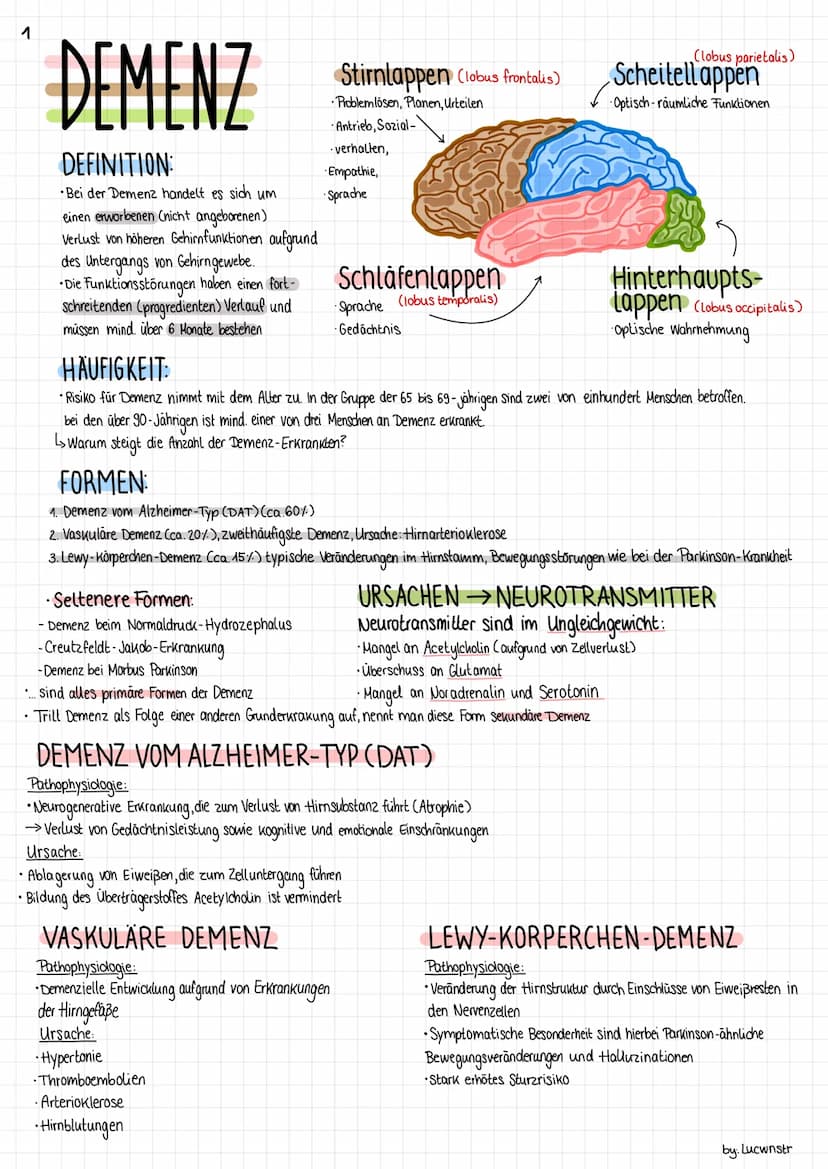 1
DEMENZ
DEFINITION:
·Bei der Demenz handelt es sich um
einen erworbenen (nicht angeborenen)
Verlust von höheren Gehirnfunktionen aufgrund
des Untergangs von Gehirngewebe.
·Die Funktionsstörungen haben einen fort-
schreitenden (progredienten) Verlauf und
müssen mind. über 6 Monate bestehen
Stirnlappen (lobus frontalis)
·Problemlösen, Planen, Urteilen
·Antrieb, Sozial-
·verhalten,
·Empathie,
·Sprache
(lobus parietalis)
Scheitellappen
·Optisch-räumliche Funktionen
Schläfenlappen
(lobus temporalis)
·Sprache
·Gedächtnis
Hinterhaupts-
lappen (lobus occipitalis)
·Optische Wahrnehmung
HÄUFIGKEIT:
·Risiko für Demenz nimmt mit dem Alter zu. In der Gruppe der 65 bis 69-jährigen sind zwei von einhundert Menschen betroffen.
bei den über 90-Jährigen ist mind. einer von drei Menschen an Demenz erkrankt.
↳Warum steigt die Anzahl der Demenz-Erkrankten?
FORMEN:
1. Demenz vom Alzheimer-Typ (DAT) (ca. 60%)
2. Vaskuläre Demenz (ca. 20%), zweithäufigste Demenz, Ursache: Hirnarterioklerose
3. Lewy-Körperchen-Demenz (ca. 15%) typische Veränderungen im Hirnstamm, Bewegungsstörungen wie bei der Parkinson-Krankheit
·Seltenere Formen:
- Demenz beim Normaldruck-Hydrozephalus
- Creutzfeldt-Jakob-Erkrankung
- Demenz bei Morbus Parkinson
·... sind alles primäre Formen der Demenz
· Trill Demenz als Folge einer anderen Grunderkrakung auf, nennt man diese Form sekundäre Demenz
URSACHEN → NEUROTRANSMITTER
Neurotransmitter sind im Ungleichgewicht:
·Mangel an Acetylcholin (aufgrund von Zellverlust)
·Überschuss an Glutamat
·Mangel an Noradrenalin und Serotonin
DEMENZ VOM ALZHEIMER-TYP (DAT)
Pathophysiologie:
·Neurogenerative Erkrankung, die zum Verlust von Hirnsubstanz führt (Atrophie)
→ Verlust von Gedächtnisleistung sowie kognitive und emotionale Einschränkungen
Ursache:
· Ablagerung von Eiweißen, die zum Zelluntergang führen
· Bildung des Überträgerstoffes Acetylcholin ist vermindert
VASKULÄRE DEMENZ
Pathophysiologie:
·Demenzielle Entwicklung aufgrund von Erkrankungen
der Hirngefäße
Ursache:
·Hypertonie
·Thromboembolien
·Arterioklerose
·Hirnblutungen
LEWY-KÖRPERCHEN-DEMENZ
Pathophysiologie:
·Veränderung der Hirnstruktur durch Einschlüsse von Eiweißresten in
den Nervenzellen
·Symptomatische Besonderheit sind hierbei Parkinson-ähnliche
Bewegungsveränderungen und Halluzinationen
·Stark erhötes Sturzrisiko
by: Lucwnstr